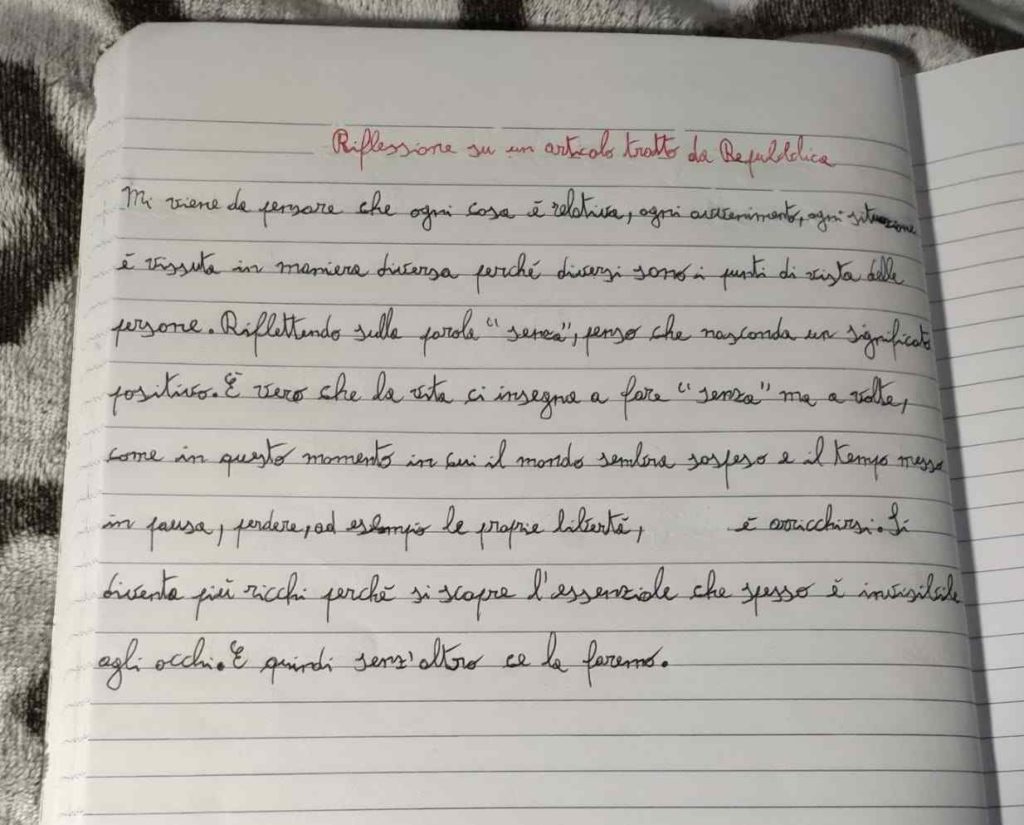 Riflessione su un articolo tratto da Repubblica
Mi viene da pensare che ogni cosa è relativa, ogni avvenimento, ogni situazione
è vissuta in maniera diversa perché diversi sono i punti di vista delle
persone. Riflettendo sulla parola "senza", penso che nasconda un significato
positivo. È vero che la vita ci insegna a fare "senza" ma a volte,
come in questo momento in cui il mondo sembra sospeso e il tempo messo
in pausa, perdere, ad esempio le proprie libertà, è arricchirsi. Si
diventa più ricchi perché si scopre l'essenziale che spesso è invisibile
agli occhi. E quindi senz'altro ce la faremo.